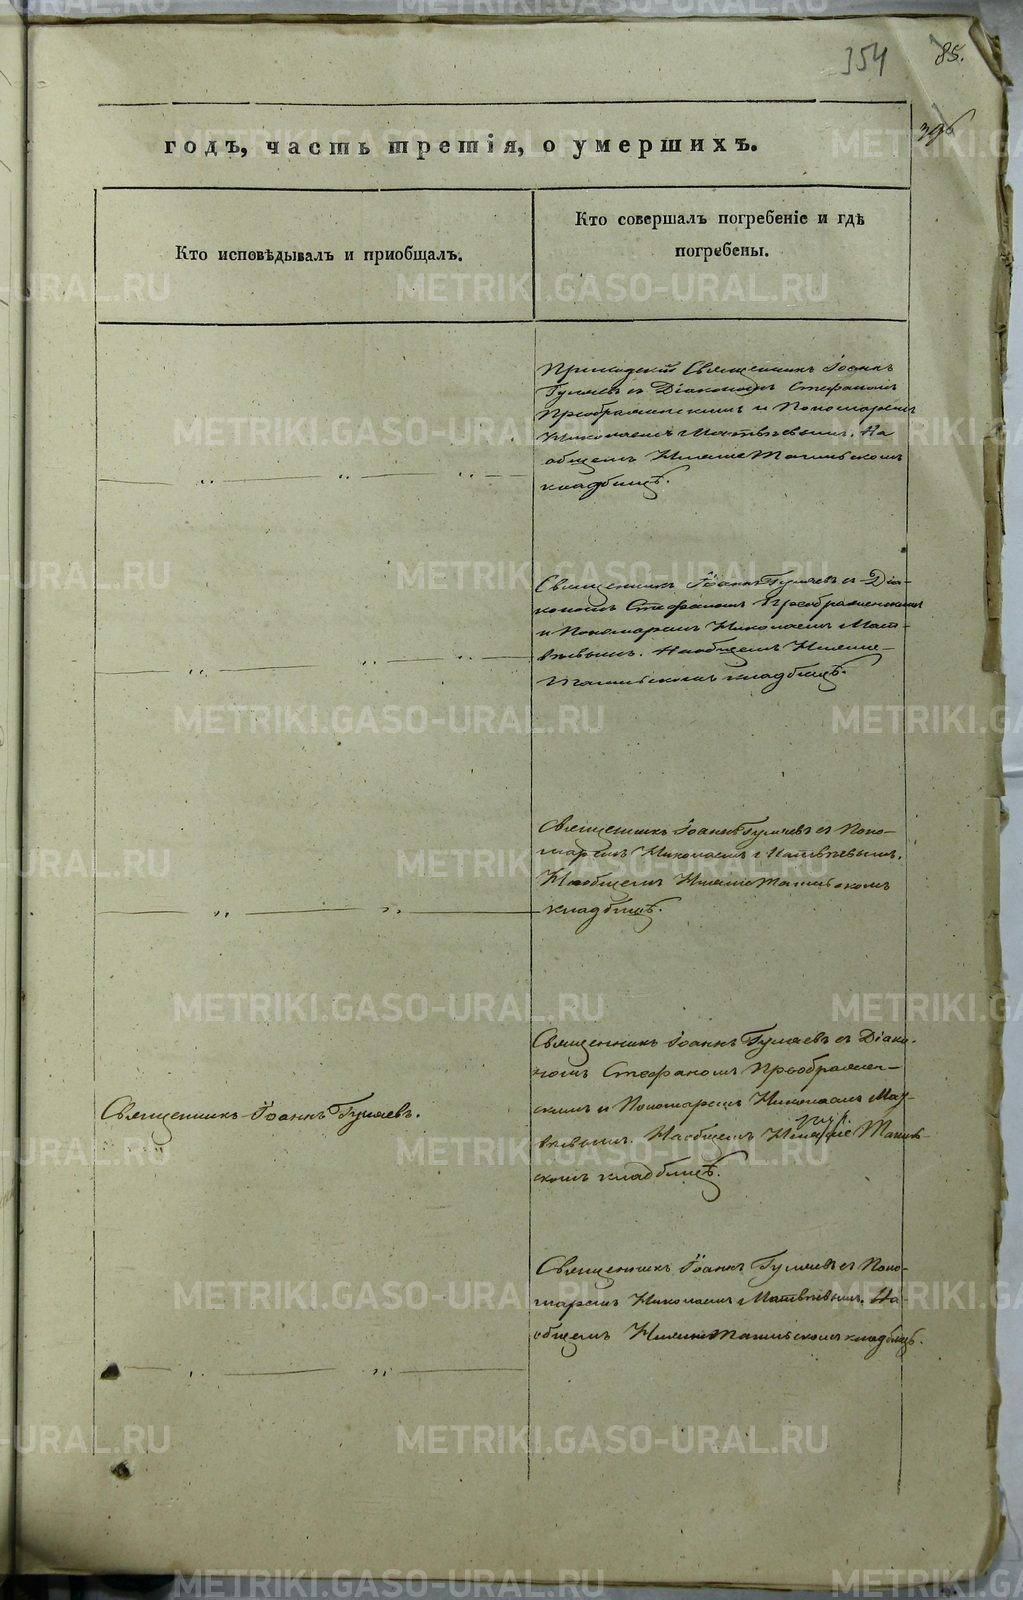 354
85.
годъ, часть третія, о умершихъ.
Кто исповѣдывалъ и приобщалъ.
Кто совершалъ погребеніе и гдѣ
погребены.
Приходскій Священникъ Іоаннъ
Гуляевъ съ Діакономъ Стефаномъ
Преображенскимъ и Пономаремъ
Николаемъ Матвѣевымъ. На
общемъ Нижне Тагильскомъ
кладбищѣ.
Священникъ Іоаннъ Гуляевъ съ Діа-
кономъ Стефаномъ Преображенскимъ
и Пономаремъ Николаемъ Мат-
вѣевымъ. На общемъ Нижне-
Тагильскомъ кладбищѣ.
Священникъ Іоаннъ Гуляевъ съ Поно-
маремъ Николаемъ Матвѣевымъ.
На общемъ Нижне Тагильскомъ
кладбищѣ.
Священникъ Іоаннъ Гуляевъ.
Священникъ Іоаннъ Гуляевъ съ Діако-
номъ Стефаномъ Преображен-
скимъ и Пономаремъ Николаемъ Мат-
вѣевымъ. На общемъ Тагиль-
скомъ кладбищѣ.
Священникъ Іоаннъ Гуляевъ съ Поно-
маремъ Николаемъ Матвѣевымъ. На-
общемъ Нижне Тагильскомъ кладбищѣ.
METRIKI.GASO-URAL.RU